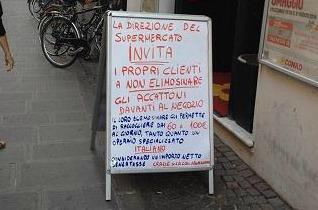 LA DIREZIONE DEL
SUPERMERCATO
INVITA
I PROPRI CLIENTI
A NON ELIMOSINARE
GLI ACCATTONI
DAVANTI AL NEGOZIO
IL LORO ELEMOSINARE GLI PERMETTE
DI RACCOGLIERE DAI 60 A 100€
AL GIORNO, TANTO QUANTO UN
OPERAIO SPECIALIZZATO
ITALIANO
CONSIDERANDO UN IMPORTO NETTO
ESENTASSE GRAZIE
OMAGGIO
CONAD